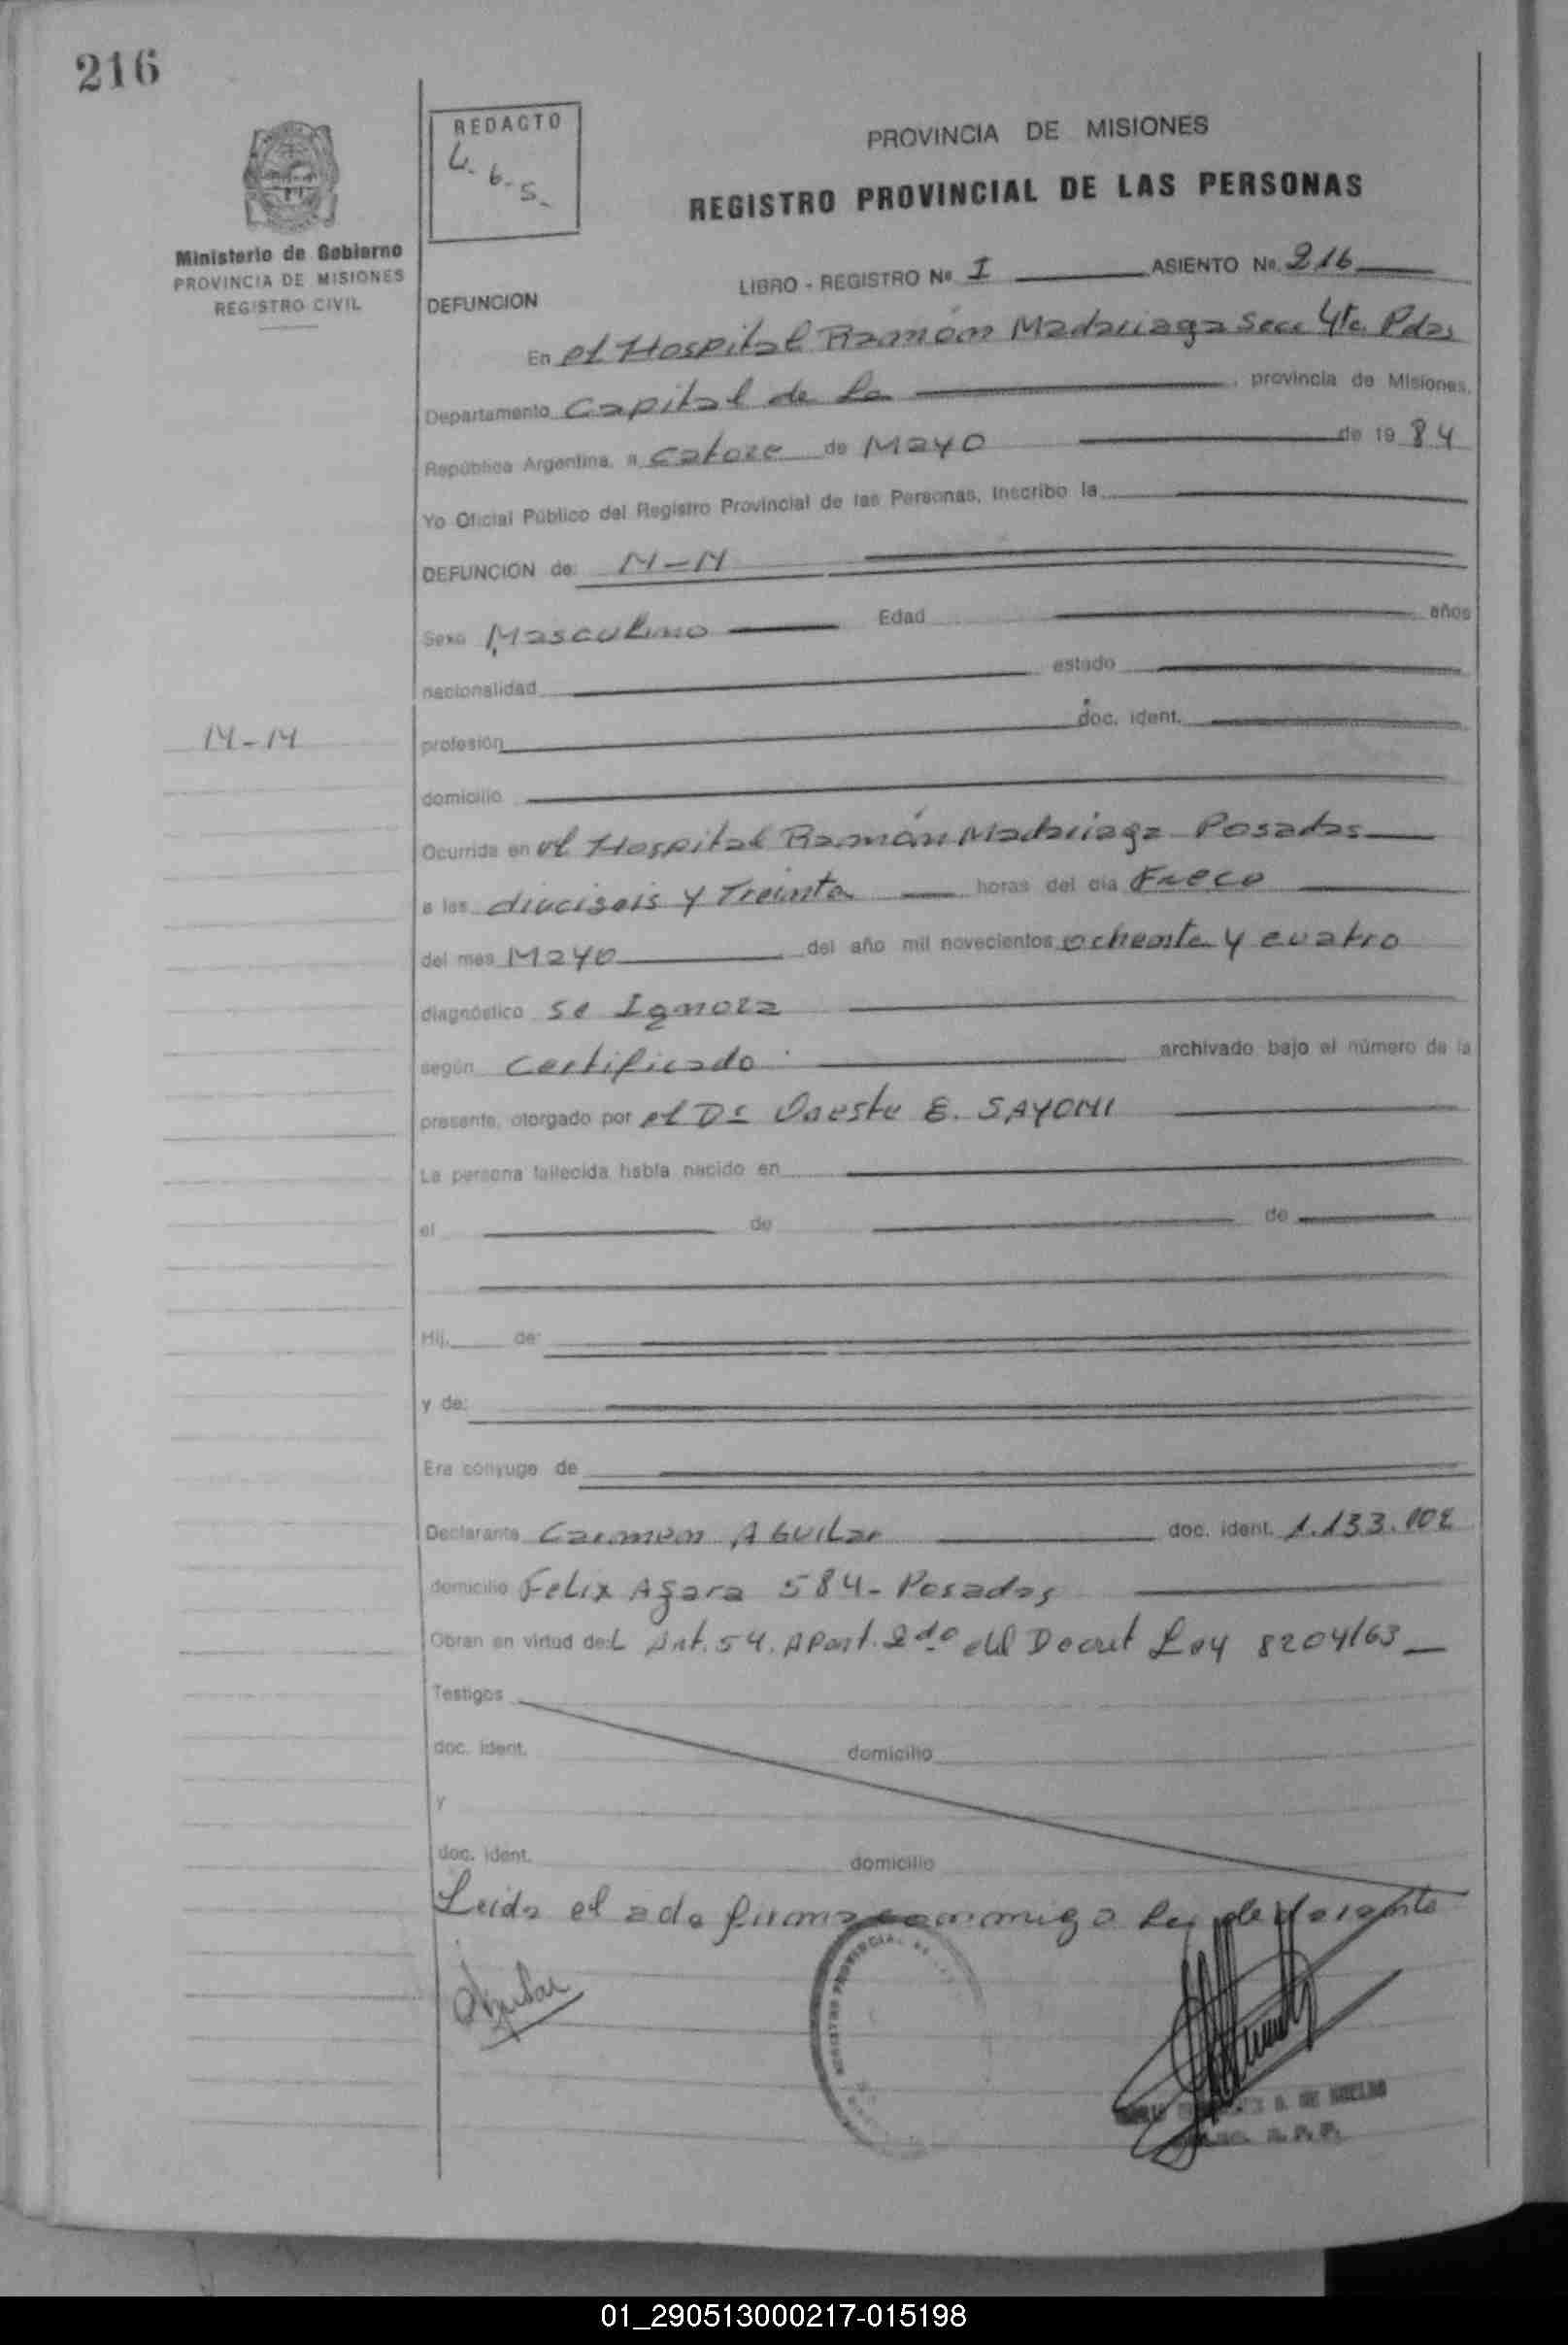 216
REDACTO
PROVINCIA DE MISIONES
REGISTRO PROVINCIAL DE LAS PERSONAS
Ministerio de Gobierno
PROVINCIA DE MISIONES
REGISTRO CIVIL
LIBRO - REGISTRO Nº I ASIENTO Nº 216
DEFUNCION
En el Hospital Ramón Madariaga Secc 4ta. Pdas
Departamento Capital de la provincia de Misiones,
República Argentina, a Catorce de Mayo de 19 84
Yo Oficial Público del Registro Provincial de las Personas, inscribo la
DEFUNCION de: N-N
Sexo Masculino Edad años
nacionalidad estado
N-N
profesión doc. ident.
domicilio
Ocurrida en el Hospital Ramón Madariaga Posadas
a las dieciseis y Treinta horas del día Trece
del mes Mayo del año mil novecientos ochenta y cuatro
diagnóstico se Ignora
según Certificado archivado bajo el número de la
presente, otorgado por el Dr E. SAYONI
La persona fallecida había nacido en
el de de
Hij. de:
y de:
Era cónyuge de
Declarante Carmen Aguilar doc. ident. 1.133.002
domicilio Felix Azara 584 - Posadas
Obran en virtud de:L Art. 54. Apart. 2do del Decret Ley 8204/63
Testigos
doc. ident. domicilio
y
doc. ident. domicilio
Leida el acta firma conmigo la declarante
Aguilar
REGISTRO PROVINCIAL DE LAS
01_290513000217-015198